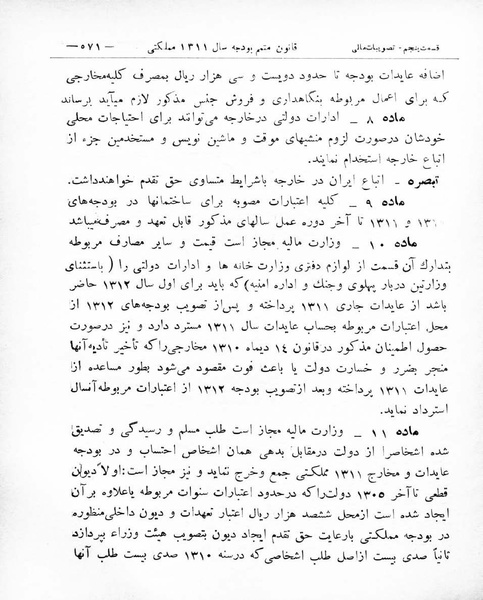 قسمت پنجم - تصویبات مالی قانون متمم بودجه سال ۱۳۱۱ مملکتی — ۵۷۱ —
اضافه عایدات بودجه تا حدود دویست و سی هزار ریال بمصرف کلیه مخارجی
که برای اعمال مربوطه بنگاهداری و فروش جنس مذکور لازم میآید برساند
ماده ۸ ـ ادارات دولتی درخارجه می‌توانند برای احتیاجات محلی
خودشان درصورت لزوم منشیهای موقت و ماشین نویس و مستخدمین جزء از
اتباع خارجه استخدام نمایند.
تبصره ـ اتباع ایران در خارجه باشرایط متساوی حق تقدم خواهندداشت.
ماده ۹ ـ کلیه اعتبارات مصوبه برای ساختمانها در بودجه‌های
۱۳۱۰ و ۱۳۱۱ تا آخر دوره عمل سالهای مذکور قابل تعهد و مصرف میباشد
ماده ۱۰ ـ وزارت مالیه مجاز است قیمت و سایر مصارف مربوطه
بتدارك آن قسمت از لوازم دفتری وزارت خانه ها و ادارات دولتی را ( باستثنای
وزارتین دربار پهلوی وجنك و اداره امنیه)که باید برای اول سال ۱۳۱۲ حاضر
باشد از عایدات جاری ۱۳۱۱ پرداخته و پس‌از تصویب بودجه‌های ۱۳۱۲ از
محل اعتبارات مربوطه بحساب عایدات سال ۱۳۱۱ مسترد دارد و نیز درصورت
حصول اطمینان مذکور درقانون ۱۴ دیماه ۱۳۱۰ مخارجی‌راکه تأخیر تأدیه‌آنها
منجر بضرر و خسارت دولت یا باعث فوت مقصود می‌شود بطور مساعده از
عایدات ۱۳۱۱ پرداخته وبعد ازتصویب بودجه ۱۳۱۲ از اعتبارات مربوطه آنسال
استرداد نماید.
ماده ۱۱ ـ وزارت مالیه مجاز است طلب مسلم و رسیدگی و تصدیق
شده اشخاص‌را از دولت درمقابل بدهی همان اشخاص احتساب و در بودجه
عایدات و مخارج ۱۳۱۱ مملکتی جمع وخرج نماید و نیز مجاز است: اولا دیون
قطعی تاآخر ۱۳۰۵ دولت‌راکه درحدود اعتبارات سنوات مربوطه یاعلاوه برآن
ایجاد شده است ازمحل ششصد هزار ریال اعتبار تعهدات و دیون داخلی‌منظوره
در بودجه مملکتی بارعایت حق تقدم ایجاد دیون بتصویب هیئت وزراء بپردازد
ثانیاً صدی بیست ازاصل طلب اشخاصی‌که درسنه ۱۳۱۰ صدی بیست طلب آنها